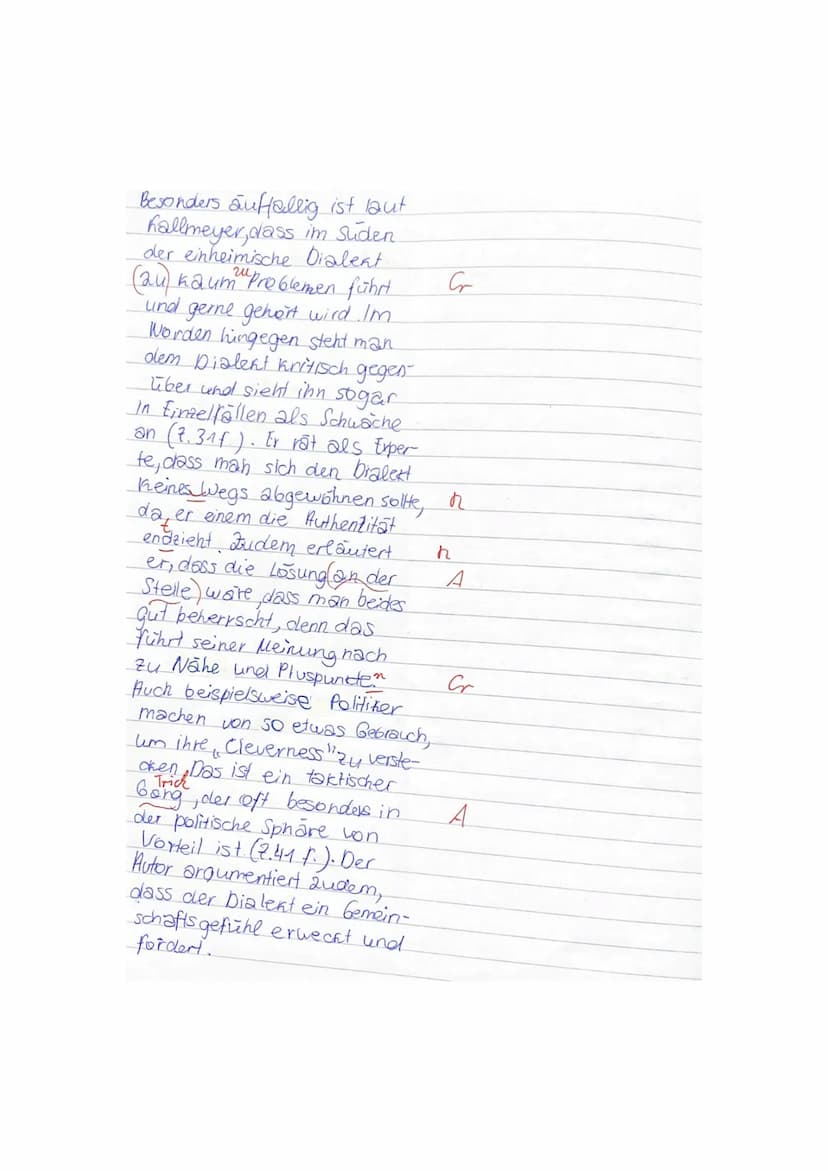 Besonders auffällig ist laut
Kallmeyer, dass im Süden
der einheimische Dialekt
(zu) kaum zu Problemen führt Gr
und gerne gehört wird. Im
Norden hingegen steht man
dem Dialekt kritisch gegen-
über und sieht ihn sogar
in Einzelfällen als Schwäche
an (Z. 31f). Er rät als Exper-
te, dass man sich den Dialekt
keines Wegs abgewöhnen sollte, R
da er einem die Authentität
endzieht. Zudem erläutert R
t
er, dass die Lösung (an der A
Stelle) wäre, dass man beides
gut beherrscht, denn das
führt seiner Meinung nach
zu Nähe und Pluspunkte. n Gr
Auch beispielsweise Politiker
machen von so etwas Gebrauch,
um ihre „Cleverness" zu verste-
cken. Das ist ein taktischer
Trick
Gang, der oft besonders in A
der politische Sphäre von
Vorteil ist (Z. 41 f.). Der
Autor argumentiert zudem,
dass der Dialekt ein Gemein-
schaftsgefühl erweckt und
fördert.